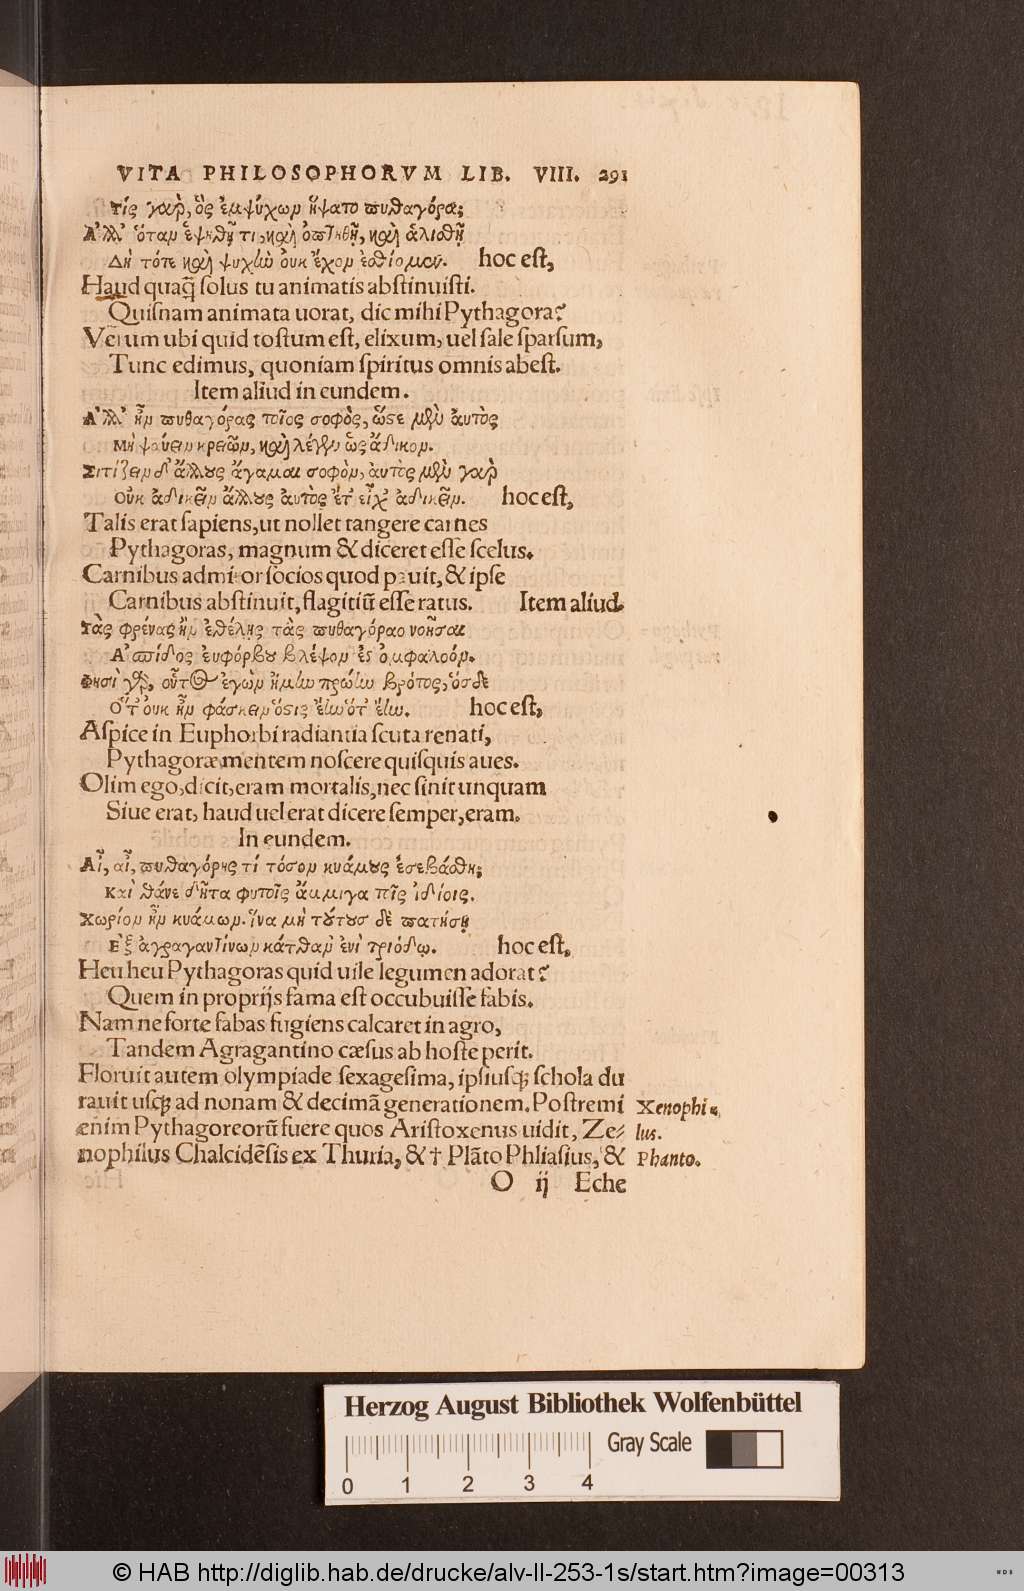 VITA PHILOSOPHORVM LIB. VIII. 291
τίς γαρ̀, ὃς ἐμψύχων ἥψατο πυθαγόρα;
Ἀλλ' ὅταν ἑψηθῇ τι, καὶ ὀπτηθῇ, καὶ ἁλισθῇ
Δὴ τότε καὶ ψυχὴν οὐκ ἔχον ἐσθίομεν. hoc est,
Haud quaq̃ solus tu animatis abstinuisti.
Quisnam animata uorat, dic mihi Pythagora?
Verum ubi quid tostum est, elixum, uel sale sparsum,
Tunc edimus, quoniam spiritus omnis abest.
Item aliud in eundem.
Ἀλλ' ἦν πυθαγόρας τοῖος σοφὸς, ὥστε μὲν αὐτὸς
Μὴ ψαύειν κρεῶν, καὶ λέγειν ὡς ἄδικον.
Σιτίζειν δ' ἄλλους ἄγαμαι σοφὸν, αὐτὸς μὲν γαρ̀
Οὐκ ἀδικεῖν ἄλλους αὐτὸς ἔτ' εἶχ' ἀδικεῖν. hoc est,
Talis erat sapiens, ut nollet tangere carnes
Pythagoras, magnum & diceret esse scelus.
Carnibus admiror socios quod pauit, & ipse
Carnibus abstinuit, flagitiũ esse ratus. Item aliud.
Τὰς φρένας ἢν ἐθέλῃς τὰς πυθαγόραο νοῆσαι
Ἀσπίδος ἐυφόρβου βλέψον ἐς ὀμφαλοόν.
Φησὶ γὰρ, οὗτος ἐγὼν ἤμην πρώην βρότος, ὅσδε
Ὅτ' οὐκ ἦν φάσκειν ὅστις ἔην ὅτ' ἔην. hoc est,
Aspice in Euphorbi radiantia scuta renati,
Pythagoræ mentem noscere quisquis aues.
Olim ego, dicit, eram mortalis, nec sinit unquam
Siue erat, haud uel erat dicere semper, eram.
In eundem.
Αἶ, αἶ, πυθαγόρης τί τόσον κυάμους ἐσεβάσθη;
Καὶ θάνε δῆτα φυτοῖς ἄμμιγα τοῖς ἰδίοις.
Χωρίον ἦν κυάμων. ἵνα μὴ τούτους δὲ πατήσῃ
Ἐξ ἀγραγαντίνων κάτθαν' ἐνὶ τριόδῳ. hoc est,
Heu heu Pythagoras quid uile legumen adorat?
Quem in proprijs fama est occubuisse fabis.
Nam ne forte fabas fugiens calcaret in agro,
Tandem Agragantino cæsus ab hoste perit.
Floruit autem olympiade sexagesima, ipsiusq; schola du
rauit usq; ad nonam & decimã generationem. Postremi
enim Pythagoreorũ fuere quos Aristoxenus uidit, Ze-
nophilus Chalcidẽsis ex Thuria, & † Plãto Phliasius, &
Xenophi-
lus.
Phanto.
O ij Eche
Herzog August Bibliothek Wolfenbüttel
Gray Scale
0 1 2 3 4
© HAB http://diglib.hab.de/drucke/alv-ll-253-1s/start.htm?image=00313